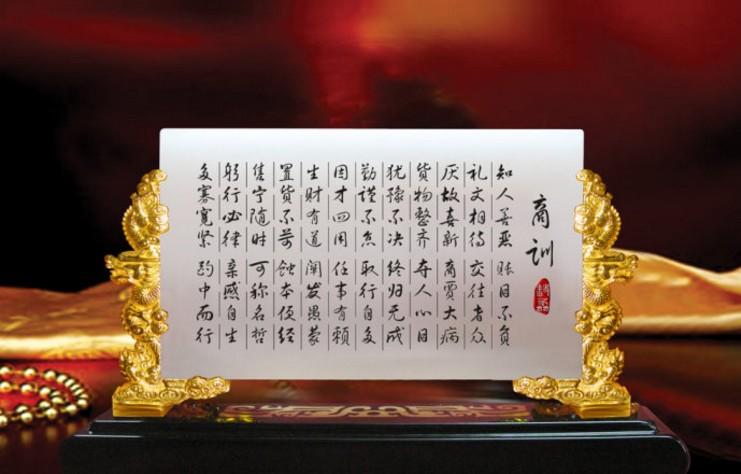 商训
知人善恶 账目不负
礼文相待 交往者众
厌故喜新 商贾大病
货物整齐 夺人心目
犹豫不决 终归无成
勤谨不怠 取行自多
因才四用 任事有赖
生财有道 阐发愚蒙
置货不苛 蚀本便经
售宁随时 可称名哲
躬行必律 亲感自生
多寡宽紧 酌中而行